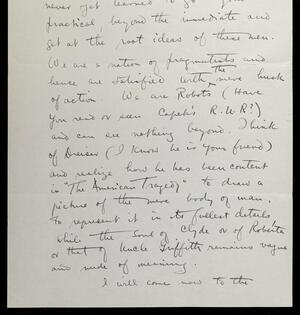 never yet learned to go
practical, beyond the immediate and
get at the root ideas of these men.
We are a nation of pragmatists and
hence are satisfied with the mere husk
of action We are Robots (Have
you read or seen Capek's R.U.R?)
and can see nothing beyond. Think
of Dreiser (I know he is your friend)
and realize how he has been content
in "The American Tragedy" to draw a
picture of the mere body of man.
To represent it in its fullest details
while the Soul of Clyde or of Roberta
or that of Uncle Griffith remains vague
and nude of meaning.
I will come now to the